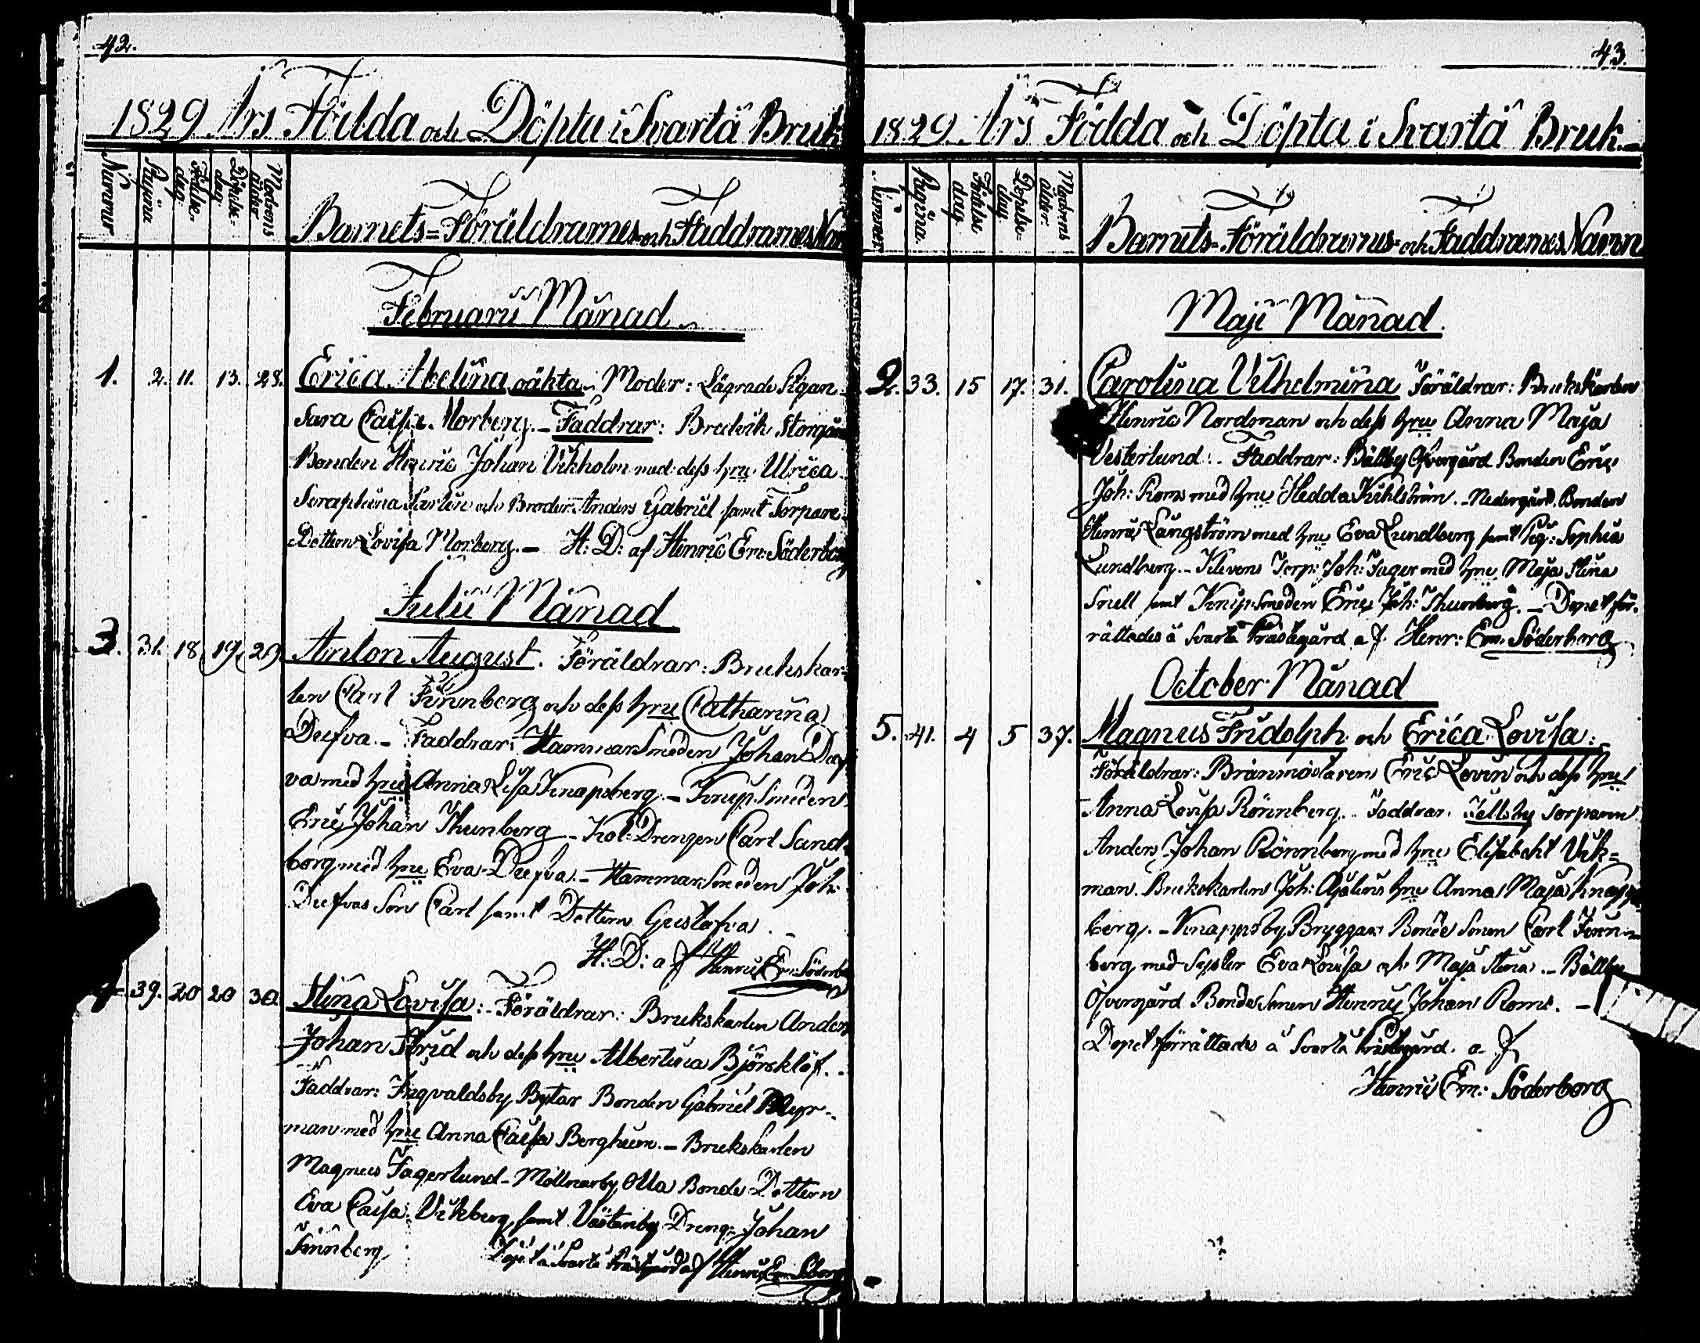 42.
1829 Års Födda och Döpta i Svartå Bruk
Nummer
Pagina
Födelse-
dag.
Döpelse-
dag.
Modrens
ålder
Barnets= Föräldrarnes och Faddrarnes Nam
Februarii Månad
1. 2. 11. 13. 28. Erica Abelina oäkta. Moder: Lägrade Pigan
Sara Caisa Norberg. – Faddrar: Bredvik Storgård
Bonden Henric Johan Vikholm med dess hru Ulrica
Seraphina Sarlin och Broder Anders Gabriel samt Torpare
Dottern Lovisa Norberg. – H: D: af Henric Em: Söderborg
Julii Månad
3. 31. 18 19 29 Anton August. Föräldrar: Brukskar-
len Carl Finnberg och dess hru Catharina
Deefva. – Faddrar: Hammar Smeden Johan Deef
va med hru Anna Lisa Knapsberg. – Knip Smeden
Eric Johan Thunberg – Kol Drengen Carl Sand-
borg med hru Eva Deefva. – Hammar Smeden Joh:
Deefvas Son Carl samt Dottern Gustafva. –
H: D: af Henric Em: Söderbo
4 39. 20 20 30. Stina Lovisa: – Föräldrar: Brukskarlen Anders
Johan Strid och dess hru Albertina Björklöf. –
Faddrar: Ingvaldsby Bytar Bonden Gabriel Myr-
man med hru Anna Caisa Berghem. – Brukskarlen
Magnus Fagerlund – Möllnarby Olla Bonde Dottern
Eva Caisa Vikberg, samt Västerby Dreng: Johan
Finnberg Dopet å Svartå Prästgård af Henric Em: Söderborg
43.
1829. Års Födda och Döpta i Svartå Bruk. –
Numer
Pagina.
Födelse
dag.
Döpelse-
dag
Modrens
ålder.
Barnets= Föräldrarnes= och Faddrarnes Namn
Maji Månad.
2. 33. 15 17. 31. Carolina Vilhelmina Föräldrar: Brukskarlen
Henric Nordman och dess hru Anna Maja
Vesterlund. – Faddrar: Bällby Öfvergård Bonden Eric
Joh: Roms med hru Hedda Kihlström. – Nedergård Bonden
Henric Långström med hru Eva Lundberg samt Pig: Sophia
Lundberg. – Klevens Torp: Joh: Fager med hru Maja Stina
Snell samt Knip Smeden Eric Joh: Thunberg. – Dopet för-
rättades å Svartå Prästegård af Henr: Em: Söderborg
October Månad
5. 41. 4 5 37. Magnus Fridolph och Erica Lovisa: –
Föräldrar: Brännmästaren Eric Lovin och dess hru
Anna Lovisa Rönnberg. – Faddrar: Torparen
Anders Johan Rönnberg med hru Elisabeht Vik=
man. Brukskarlen Joh: hru Anna Maja Knapps
berg. – Knappsby Bryggars Bonde Sonen Carl Finn-
berg med Syster Eva Lovisa och Maja Stina. – Bällby
Öfvergård Bonde Sonen Henric Johan Roms. –
Dopet förrättades å Svartå Prästegård. af
Henric Em: Söderborg